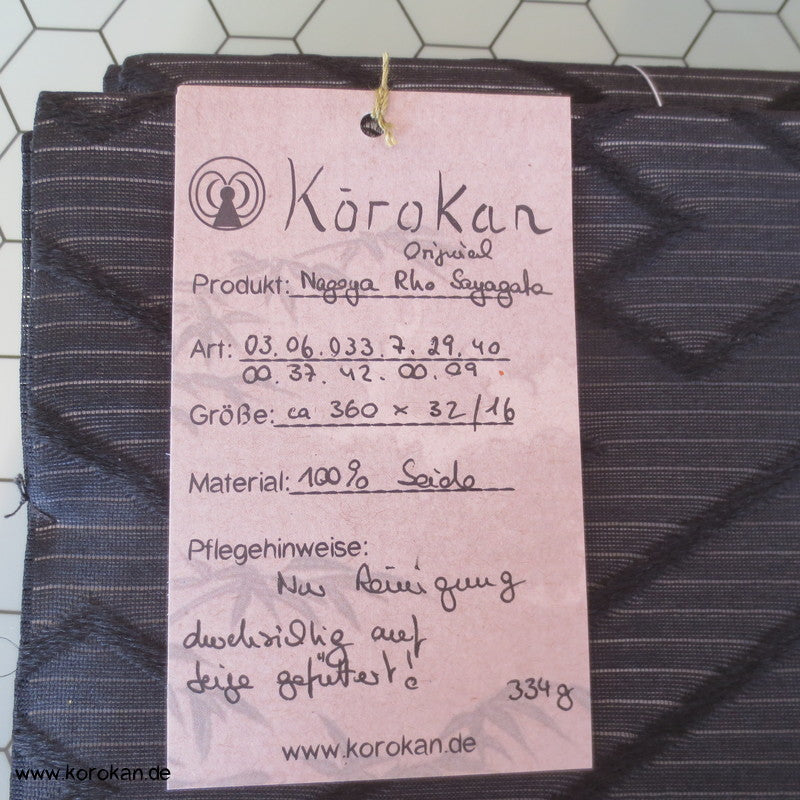 Kōrokan
Original
Produkt: Nagoya Rho Sayagata
Art: 03.06.033.7.29.40
00.37.42.00.09
Größe: ca 360 x 32/16
Material: 100% Seide
Pflegehinweise:
Nur Reinigung
durchsichtig auf
beige gefüttert!
334g
www.korokan.de
www.korokan.de